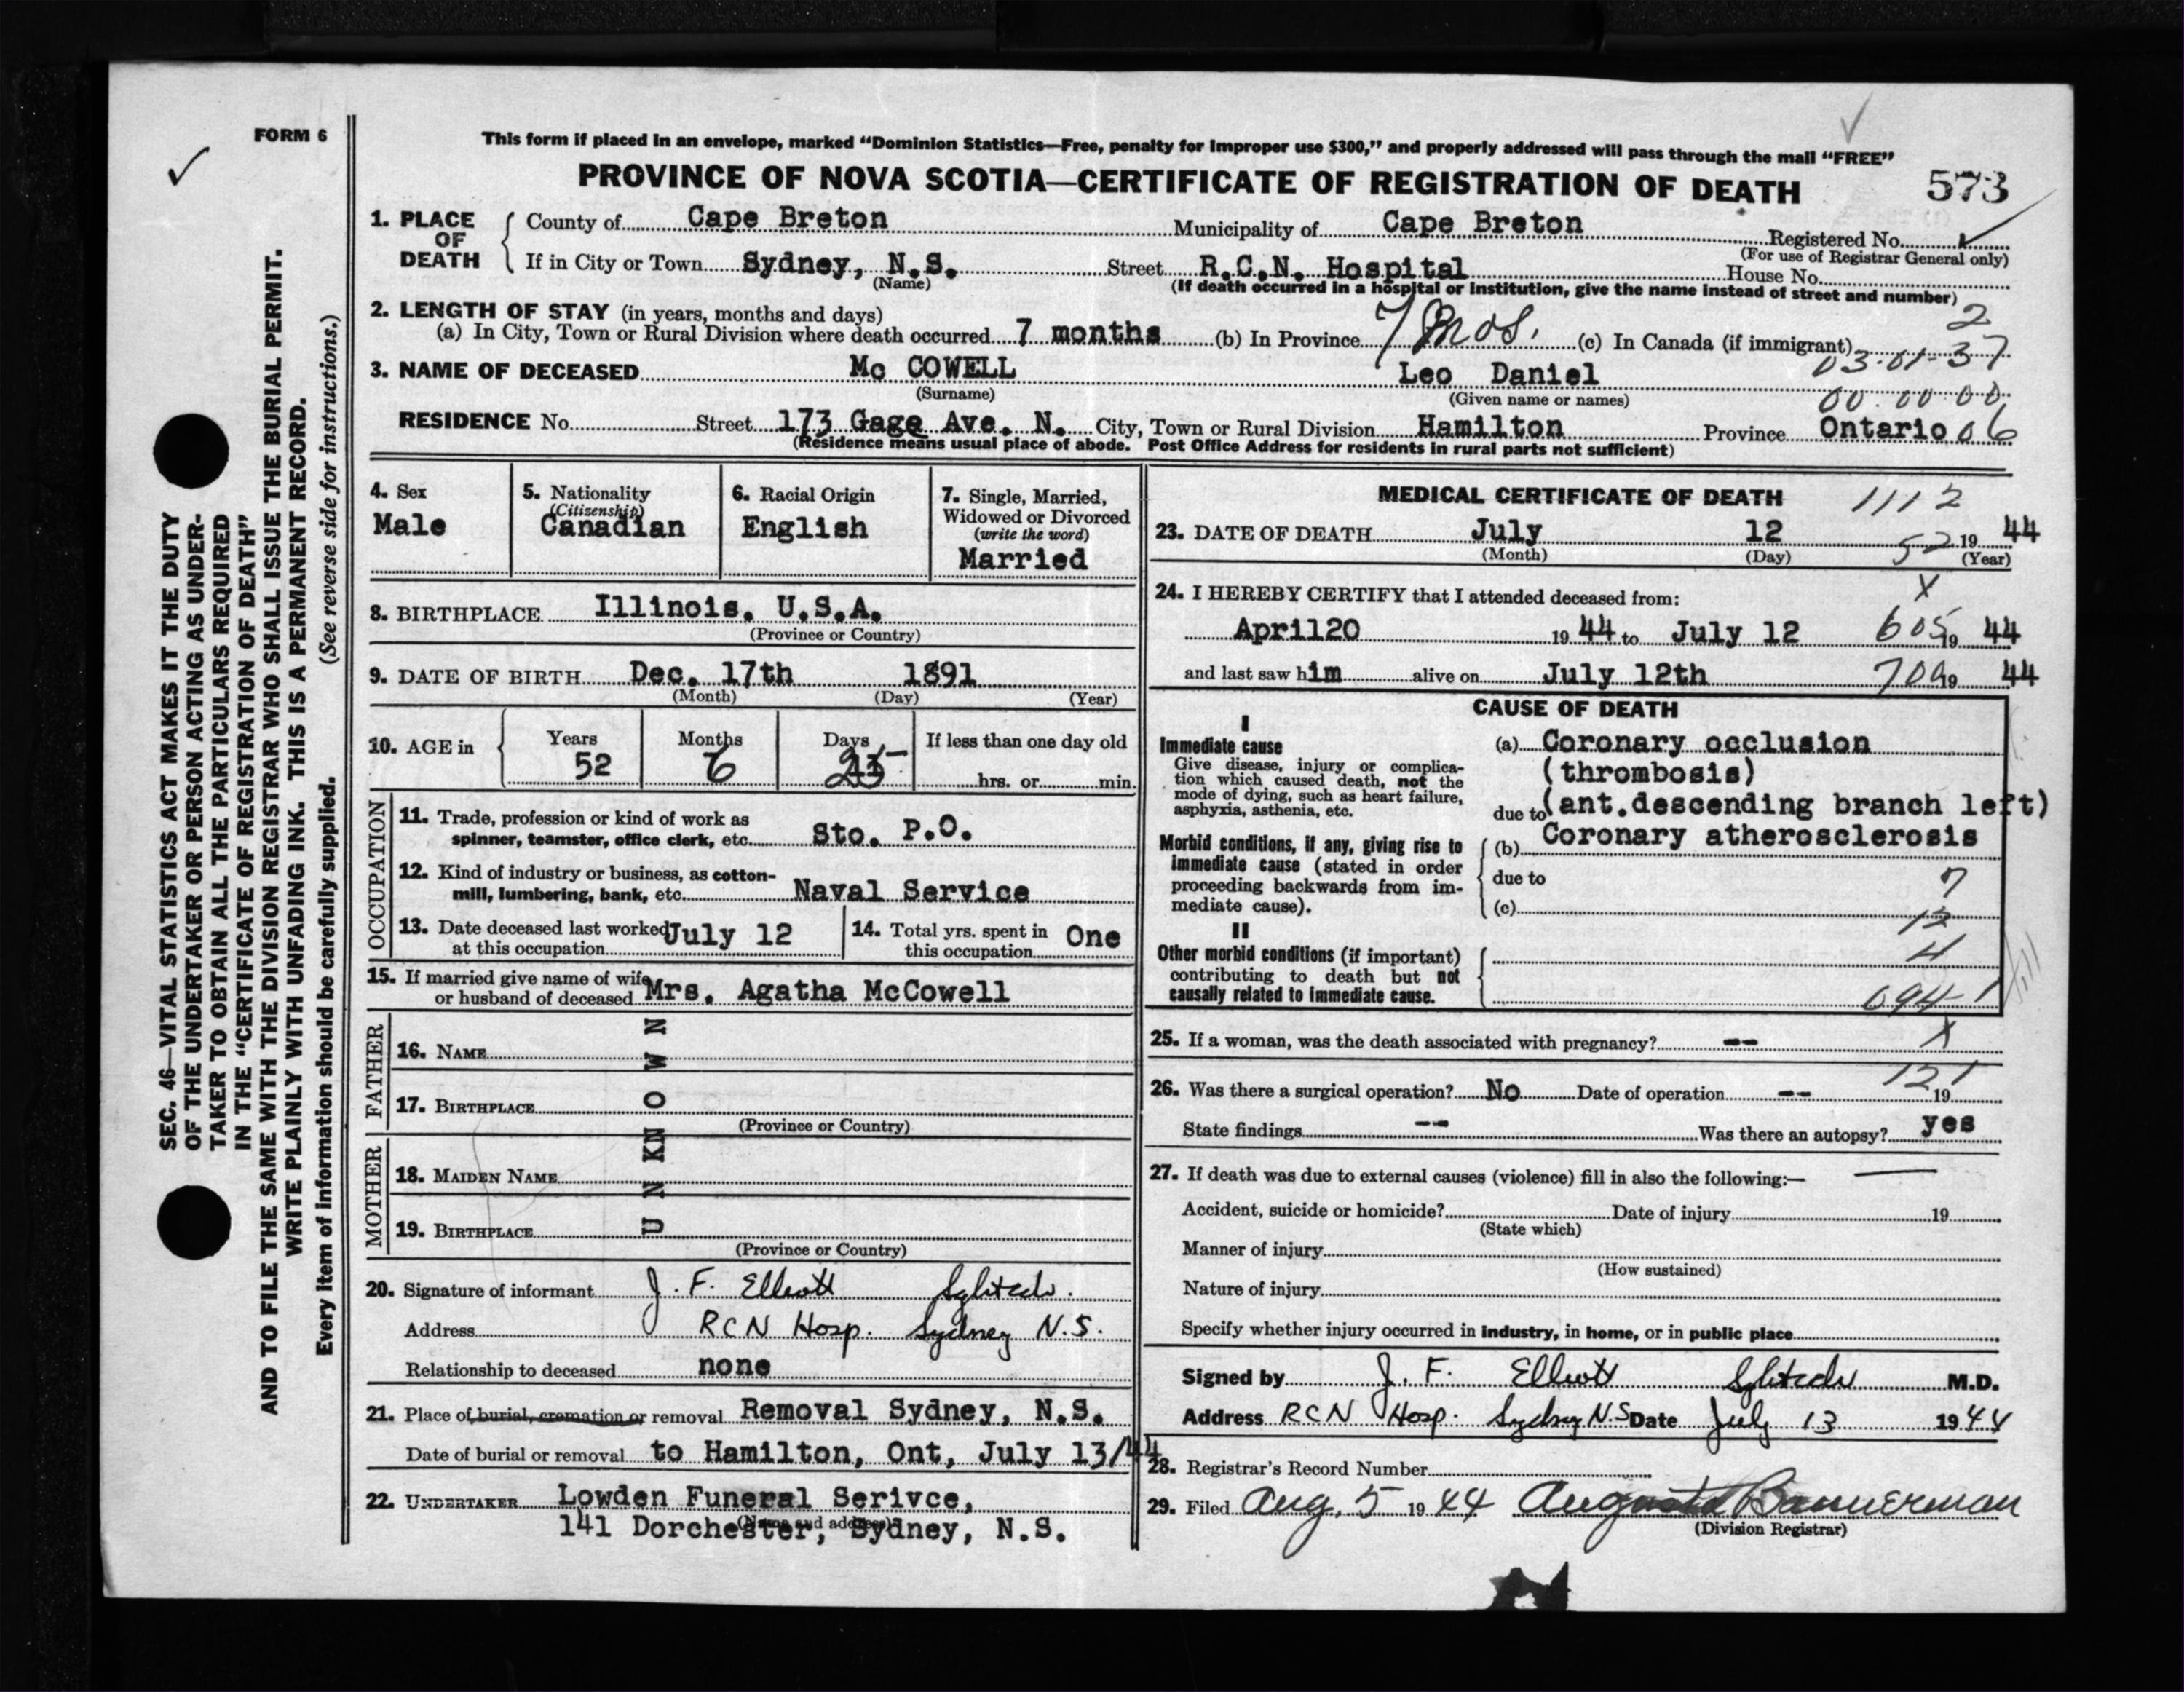 FORM 6
This form if placed in an envelope, marked “Dominion Statistics—Free, penalty for improper use $300,” and properly addressed will pass through the mail “FREE”
PROVINCE OF NOVA SCOTIA—CERTIFICATE OF REGISTRATION OF DEATH
573
1. PLACE OF DEATH
County of Cape Breton Municipality of Cape Breton Registered No.
(For use of Registrar General only)
If in City or Town Sydney, N.S. Street R.C.N. Hospital House No.
(Name) (If death occurred in a hospital or institution, give the name instead of street and number)
2. LENGTH OF STAY (in years, months and days)
2
(a) In City, Town or Rural Division where death occurred 7 months (b) In Province 7 mos. (c) In Canada (if immigrant)
03-01-37
3. NAME OF DECEASED Mc COWELL Leo Daniel
(Surname) (Given name or names)
00 00 00
RESIDENCE No. Street 173 Gage Ave. N. City, Town or Rural Division Hamilton Province Ontario 06
(Residence means usual place of abode. Post Office Address for residents in rural parts not sufficient)
4. Sex
Male
5. Nationality
(Citizenship)
Canadian
6. Racial Origin
English
7. Single, Married,
Widowed or Divorced
(write the word)
Married
8. BIRTHPLACE Illinois. U.S.A.
(Province or Country)
9. DATE OF BIRTH Dec. 17th 1891
(Month) (Day) (Year)
10. AGE in
Years Months Days If less than one day old
52 6 25 hrs. or min.
OCCUPATION
11. Trade, profession or kind of work as
spinner, teamster, office clerk, etc. Sto. P.O.
12. Kind of industry or business, as cotton-
mill, lumbering, bank, etc. Naval Service
13. Date deceased last worked July 12
at this occupation
14. Total yrs. spent in One
this occupation
15. If married give name of wife
or husband of deceased Mrs. Agatha McCowell
FATHER
16. NAME
17. BIRTHPLACE
(Province or Country)
MOTHER
18. MAIDEN NAME
19. BIRTHPLACE
(Province or Country)
U N KN O W N
20. Signature of informant J. F. Elliott
Address RCN Hosp. Sydney N.S.
Relationship to deceased none
21. Place of burial, cremation or removal Removal Sydney, N.S.
Date of burial or removal to Hamilton, Ont, July 13/44
22. UNDERTAKER Lowden Funeral Serivce,
(Name and address)
141 Dorchester, Sydney, N.S.
MEDICAL CERTIFICATE OF DEATH 1112
23. DATE OF DEATH July 12 52 19 44
(Month) (Day) (Year)
X
24. I HEREBY CERTIFY that I attended deceased from:
April20 19 44 to July 12 605 19 44
and last saw him alive on July 12th 709 19 44
CAUSE OF DEATH
I
Immediate cause
Give disease, injury or complica-
tion which caused death, not the
mode of dying, such as heart failure,
asphyxia, asthenia, etc.
(a) Coronary occlusion
(thrombosis)
due to (ant.descending branch left)
Morbid conditions, if any, giving rise to
immediate cause (stated in order
proceeding backwards from im-
mediate cause).
(b) Coronary atherosclerosis
due to
7
(c)
12
II
Other morbid conditions (if important)
contributing to death but not
causally related to immediate cause.
4
094-1
25. If a woman, was the death associated with pregnancy? -- X
121
26. Was there a surgical operation? No Date of operation -- 19
State findings -- Was there an autopsy? yes
27. If death was due to external causes (violence) fill in also the following:—
Accident, suicide or homicide? Date of injury 19
(State which)
Manner of injury
(How sustained)
Nature of injury
Specify whether injury occurred in industry, in home, or in public place
Signed by J. F. Elliott M.D.
Address RCN Hosp. Sydney N.S Date July 13 1944
28. Registrar's Record Number
29. Filed Aug. 5 1944 Augusta Bannerman
(Division Registrar)
SEC. 46—VITAL STATISTICS ACT MAKES IT THE DUTY
OF THE UNDERTAKER OR PERSON ACTING AS UNDER-
TAKER TO OBTAIN ALL THE PARTICULARS REQUIRED
IN THE “CERTIFICATE OF REGISTRATION OF DEATH”
AND TO FILE THE SAME WITH THE DIVISION REGISTRAR WHO SHALL ISSUE THE BURIAL PERMIT.
WRITE PLAINLY WITH UNFADING INK. THIS IS A PERMANENT RECORD.
Every item of information should be carefully supplied. (See reverse side for instructions.)